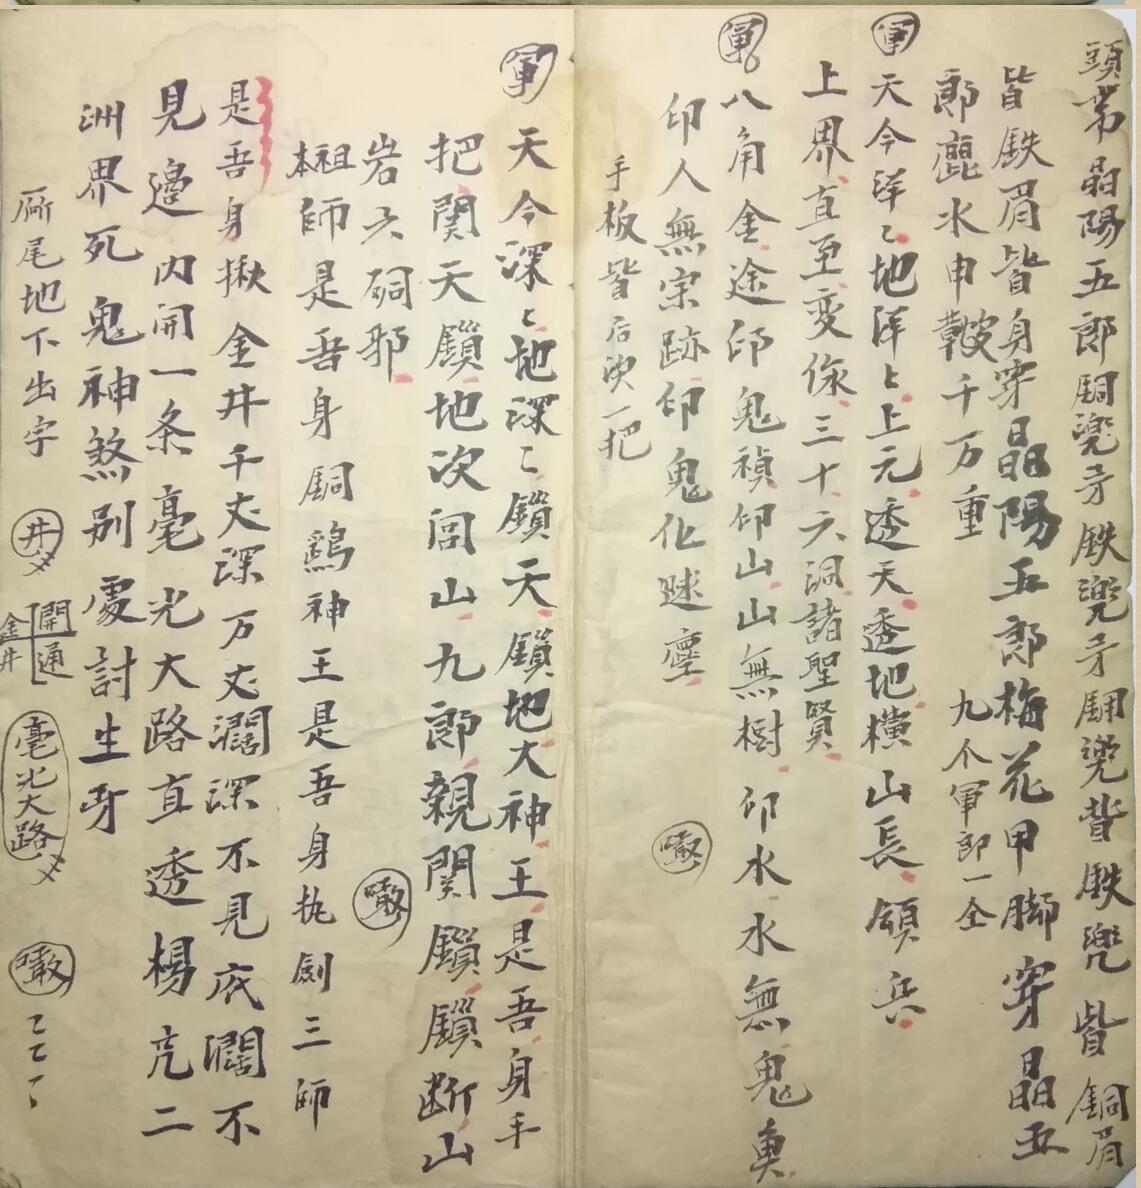 頭帶晶陽五郎銅兠牙鉄兠牙銅兠背鉄兠背銅眉
皆鉄眉皆身穿晶陽五郎梅花甲脚穿晶五
郎麀水申鞁千万重 九个軍郎一全
軍 天今洋〻地洋〻上元透天透地橫山長領兵
上界直至变係三十六洞諸聖賢
軍 八角金途印鬼禎印山山無樹印水水無鬼奠
印人無宗跡印鬼化迷塵 噉
手板皆后決一把
軍 天今深〻地深〻鎖天鎖地大神王是吾身手
把関天鎖地次闾山九郎親関鎖鎖断山
岩六硐邪 噉
本祖師是吾身銅鷄神王是吾身执劍三師
是吾身揪金井千丈深万丈濶深不見底濶不
見邊内開一条毫光大路直透楊亢二
洲界死鬼神煞别處討生身
厮尾地下出字 井 金井開通 毫光大路 噉